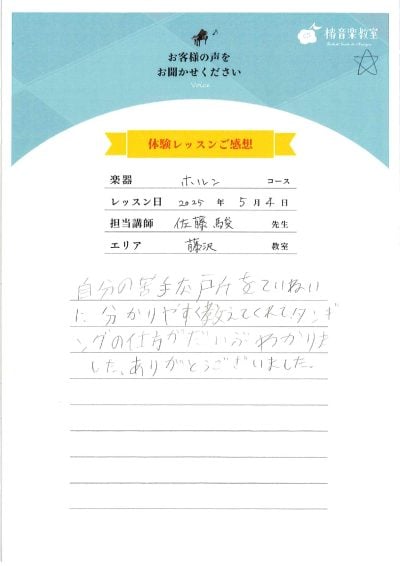 椿音楽教室
お客様の声を
お聞かせください
Voice
体験レッスンご感想
楽器 ホルン コース
レッスン日 2025 年 5 月 4 日
担当講師 佐藤 駿 先生
エリア 藤沢 教室
自分の苦手な所をていねい
に分かりやすく教えてくれてタンギ
ングの仕方がだいぶわかりま
した。ありがとうございました。